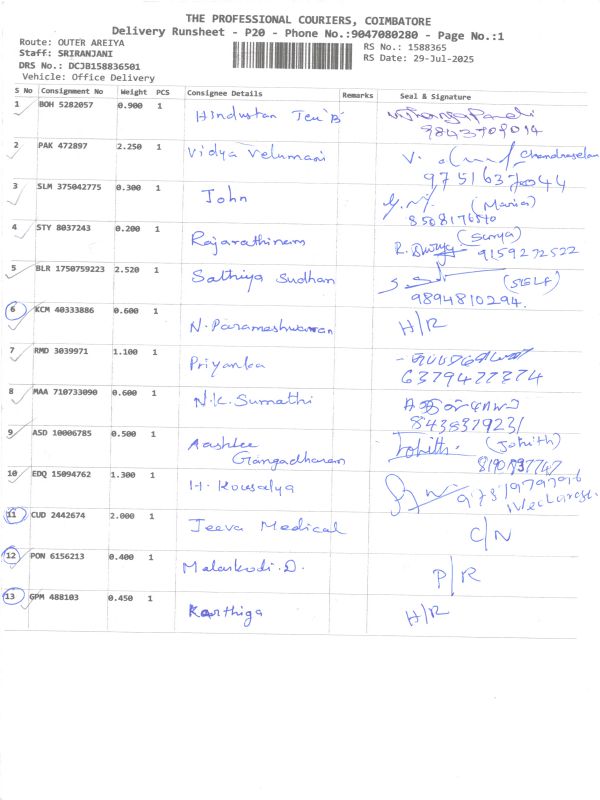 THE PROFESSIONAL COURIERS, COIMBATORE
Delivery Runsheet - P20 - Phone No.:9047080280 - Page No.:1
Route: OUTER AREIYA
Staff: SRIRANJANI
DRS No.: DCJB158836501
Vehicle: Office Delivery
RS No.: 1588365
RS Date: 29-Jul-2025
S No Consignment No Weight PCS Consignee Details Remarks Seal & Signature
1 BOH 5282057 0.900 1 Hindustan Tex 'B'
2 PAK 472897 2.250 1 Vidya Velumani V. Chandraselan
97516 37044
3 SLM 375042775 0.300 1 John (Maria)
8508176540
4 STY 8037243 0.200 1 Rajarathinam (Surya)
9159272522
5 BLR 1750759223 2.520 1 Sathiya Sudhan (SELF)
9894810294.
6 KCM 40333886 0.600 1 N. Parameshwaran H/R
7 RMD 3039971 1.100 1 Priyanka
6379477374
8 MAA 710733090 0.600 1 N.K. Sumathi
8438379231
9 ASD 10006785 0.500 1 Aashlee Gangadharan Johith. (Johith)
10 EDQ 15094762 1.300 1 H. Kousalya
11 CUD 2442674 2.000 1 Jeeva Medical C/N
12 PON 6156213 0.400 1 Malarkodi .D. P/R
13 GPM 488103 0.450 1 Karthiga H/R